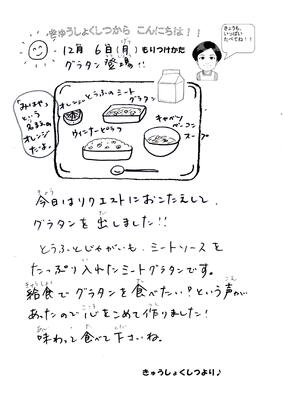 きゅうしょくしつから こんにちは！！
きょうも、
いっぱい
たべてね！！
12月 6日(月) もりつけかた
グラタン登場!!
みはや
という
名まえの
オレンジ
だよ。
オレンジ
とうふのミート
グラタン
ウィンナーピラフ
キャベツ
ベーコン
スープ
今日はリクエストにおこたえして、
グラタンを出しました!!
とうふとじゃがいも、ミートソースを
たっぷり入れたミートグラタンです。
給食でグラタンを食べたい?という声が
あったので心をこめて作りました!
味わって食べて下さいね。
きゅうしょくしつより♪